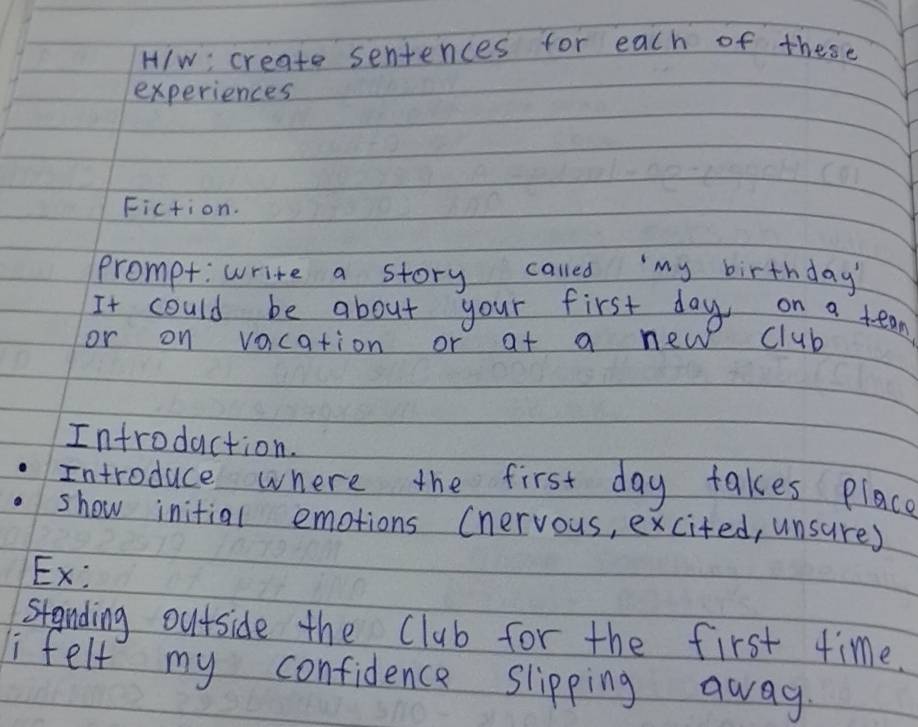 H/W: create sentences for each of these
experiences
Fiction.
Prompt: write a story called 'my birthday'
It could be about your first day on a team
or on vacation or at a new club
Introduction.
• Introduce where the first day takes place
• show initial emotions (nervous, excited, unsure)
Ex:
Standing outside the club for the first time.
i felt my confidence slipping away.